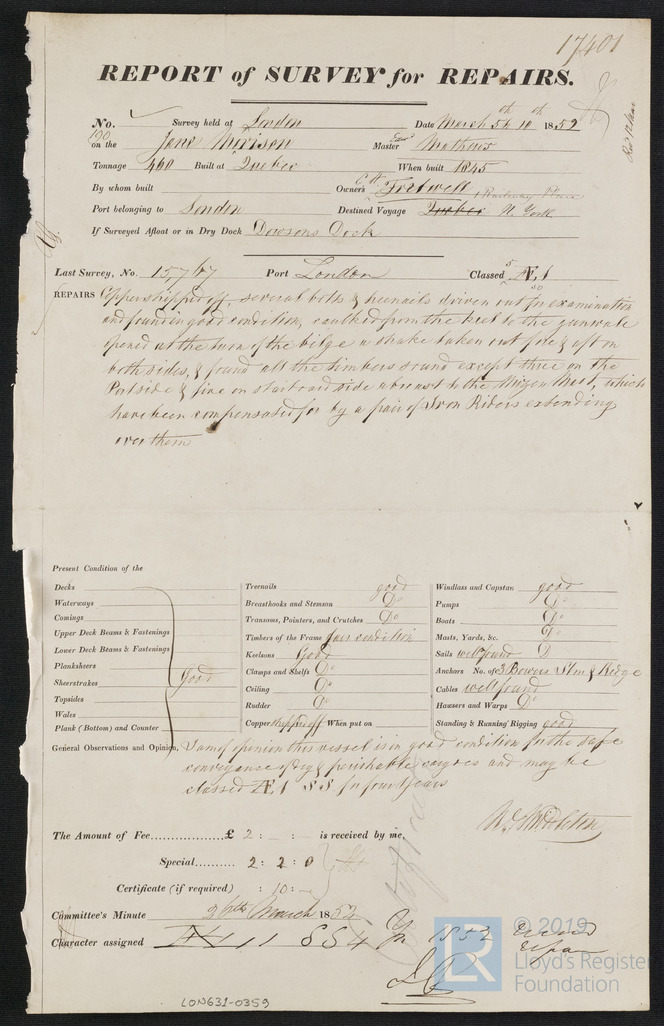 17401
REPORT of SURVEY for REPAIRS.
No. Survey held at London Date March 5th 10th 1852
190
on the Jane Morison Master Mathews
Tonnage 460 Built at Quebec When built 1845
By whom built Owners Fortwell
Port belonging to London Destined Voyage Quebec N. York
If Surveyed Afloat or in Dry Dock Dowsons Dock
Last Survey, No. 15,767 Port London Classed 5 Æ 1
50
REPAIRS Copper shipped off, several bolts & treenails driven out for examination
and found in good condition, caulked from the keel to the gunwale
opened at the turn of the bilge a strake taken out fore & aft on
both sides, & found all the timbers sound except three on the
Port side & five on starboard side abreast to the Mizen Mast, which
have been compensated for by a pair of Iron Riders extending
over them
Present Condition of the
Decks
Waterways
Comings
Upper Deck Beams & Fastenings
Lower Deck Beams & Fastenings
Planksheers
Sheerstrakes good
Topsides
Wales
Plank (Bottom) and Counter
Treenails good
Breasthooks and Stemson Do
Transoms, Pointers, and Crutches Do
Timbers of the Frame fair condition
Keelsons Good
Clamps and Shelfs Do
Ceiling Do
Rudder Do
Copper stripped off When put on
Windlass and Capstan good
Pumps Do
Boats Do
Masts, Yards, &c. Do
Sails well found D
Anchors No. of 3 Bowers Strm & Kedge
Cables well found
Hawsers and Warps Do
Standing & Running Rigging good
General Observations and Opinion, I am of opinion this vessel is in good condition for the safe
conveyance of dry & perishable cargoes and may be
classed Æ 1 SS for four years
The Amount of Fee £ 2 : : is received by me,
Special 2 : 2 : 0
Certificate (if required) : 10 :
Committee's Minute 26th March 1852
Character assigned Æ 1 SS 4 Yrs 1852
© 2019
LR
Lloyd's Register
Foundation
LON631-0359